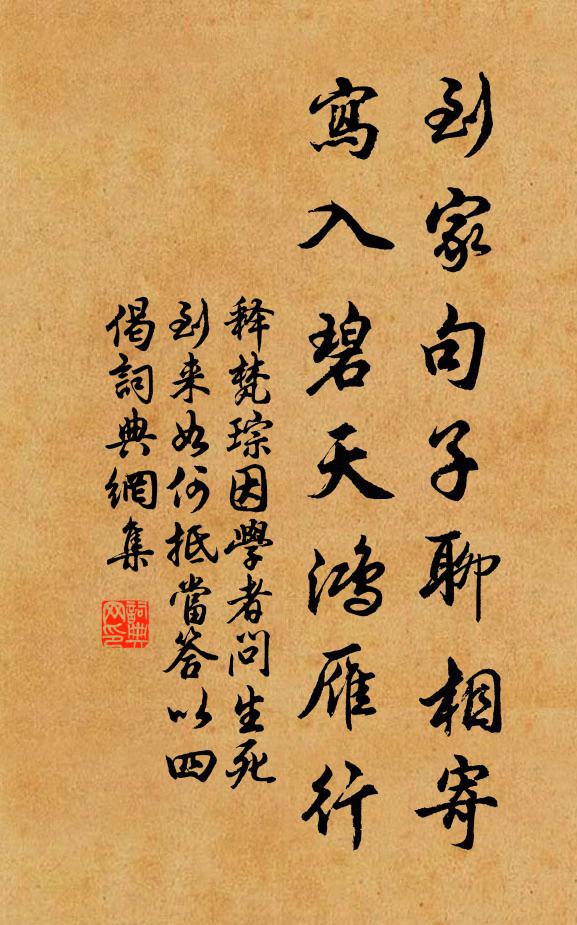 到家句子聊相寄
寫入碧天鴻雁行
释梵琮因學者問生死
到来如何抵當答以四
偈詞典網集
詞典网印